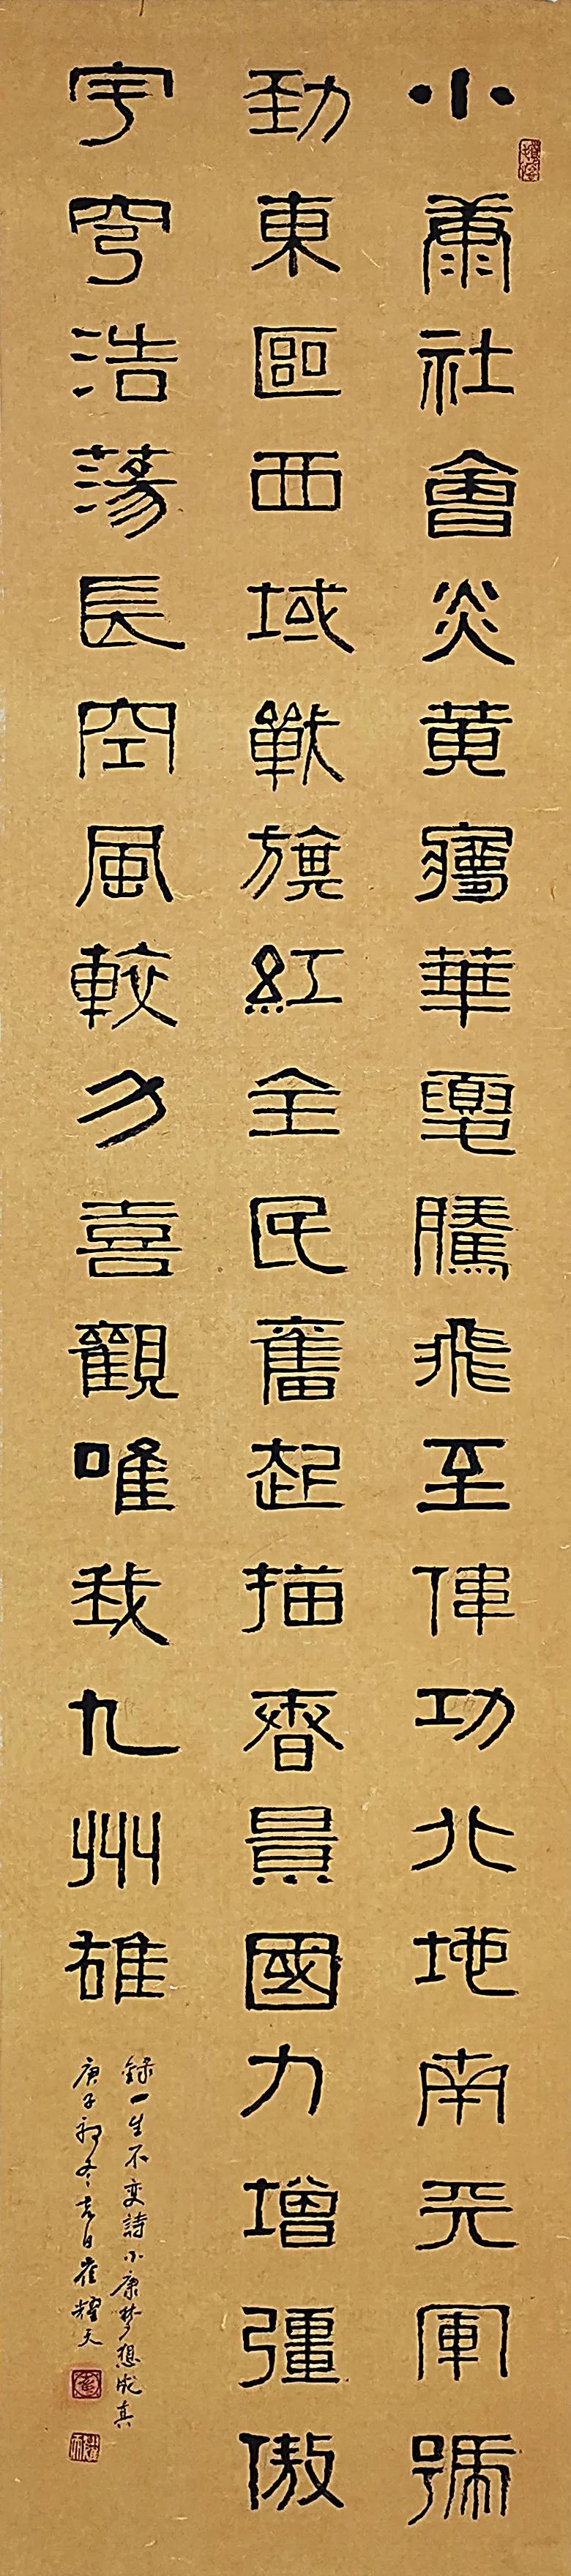 小康社會炎黄夢華夏騰飛至偉功北地南天軍號
勁東區西域戰旗紅全民奮起描春景國力增彊傲
宇穹浩蕩長空風較力喜觀唯我九州雄
錄一生不变詩小康梦想成真
庚子初冬吉日崔耀天